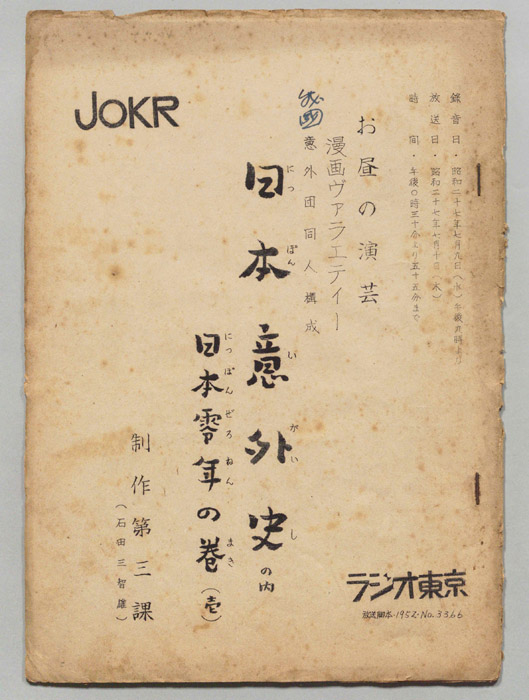 JOKR
録音日・昭和二十七年七月九日(水)午後九時より
放送日・昭和二十七年七月十日(木)
時間・午後〇時三十分より五十五分まで
お昼の演芸
漫画ヴァラエティー
意外団同人構成
日本意外史の内
にっぽんいがいし
日本零年の巻(壱)
にっぽんぜろねんまき
制作第三課
(石田三智雄)
ラジオ東京
放送脚本・1952・No.3366